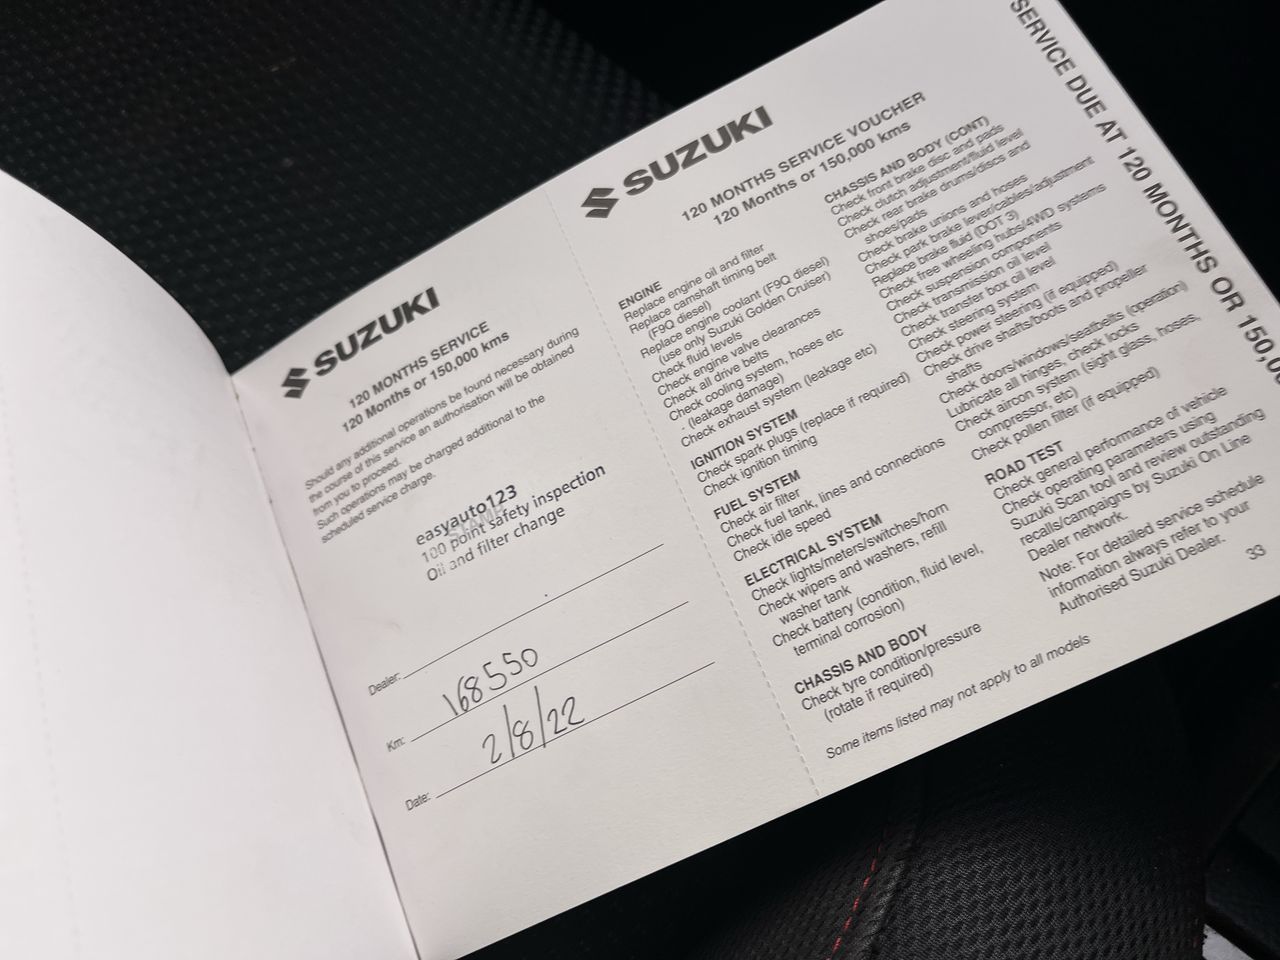 SUZUKI
120 MONTHS SERVICE
120 Months or 150,000 kms
Should any additional operations be found necessary during
the course of this service an authorisation will be obtained
from you to proceed.
Such operations may be charged additional to the
scheduled service charge.
STAMP
easyauto123
100 point safety inspection
Oil and filter change
Dealer:
Km: 168550
Date: 2/8/22
SUZUKI
120 MONTHS SERVICE VOUCHER
120 Months or 150,000 kms
ENGINE
Replace engine oil and filter
Replace camshaft timing belt
(F9Q diesel)
Replace engine coolant (F9Q diesel)
(use only Suzuki Golden Cruiser)
Check fluid levels
Check engine valve clearances
Check all drive belts
Check cooling system, hoses etc
- (leakage damage)
Check exhaust system (leakage etc)
IGNITION SYSTEM
Check spark plugs (replace if required)
Check ignition timing
FUEL SYSTEM
Check air filter
Check fuel tank, lines and connections
Check idle speed
ELECTRICAL SYSTEM
Check lights/meters/switches/horn
Check wipers and washers, refill
washer tank
Check battery (condition, fluid level,
terminal corrosion)
CHASSIS AND BODY
Check tyre condition/pressure
(rotate if required)
CHASSIS AND BODY (CONT)
Check front brake disc and pads
Check clutch adjustment/fluid level
Check rear brake drums/discs and
shoes/pads
Check brake unions and hoses
Check park brake lever/cables/adjustment
Replace brake fluid (DOT 3)
Check free wheeling hubs/4WD systems
Check suspension components
Check transmission oil level
Check transfer box oil level
Check steering system
Check power steering (if equipped)
Check drive shafts/boots and propeller
shafts
Check doors/windows/seatbelts (operation)
Lubricate all hinges, check locks
Check aircon system (sight glass, hoses,
compressor, etc)
Check pollen filter (if equipped)
ROAD TEST
Check general performance of vehicle
Check operating parameters using
Suzuki Scan tool and review outstanding
recalls/campaigns by Suzuki On Line
Dealer network.
Note: For detailed service schedule
information always refer to your
Authorised Suzuki Dealer.
Some items listed may not apply to all models
33
SERVICE DUE AT 120 MONTHS OR 150,0